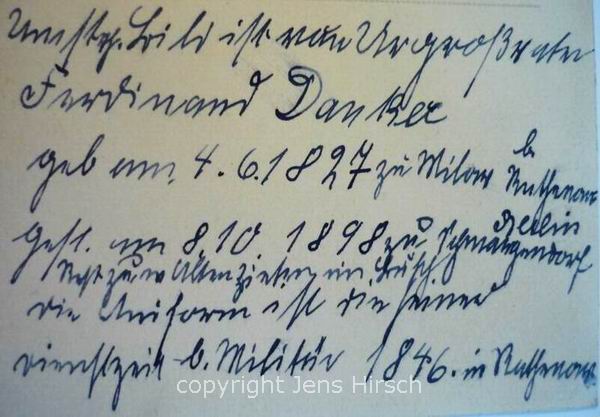 Umstg. Bild ist von Urgroßvater
Ferdinand Danker
geb am 4.6.1827 zu Milow b. Rathenow
gest. am 8.10.1898 zu Berlin Schmargendorf
zu Zieten im Busch
die Uniform ist die seiner
Dienstzeit b. Militär 1846. in Rathenow.
copyright Jens Hirsch